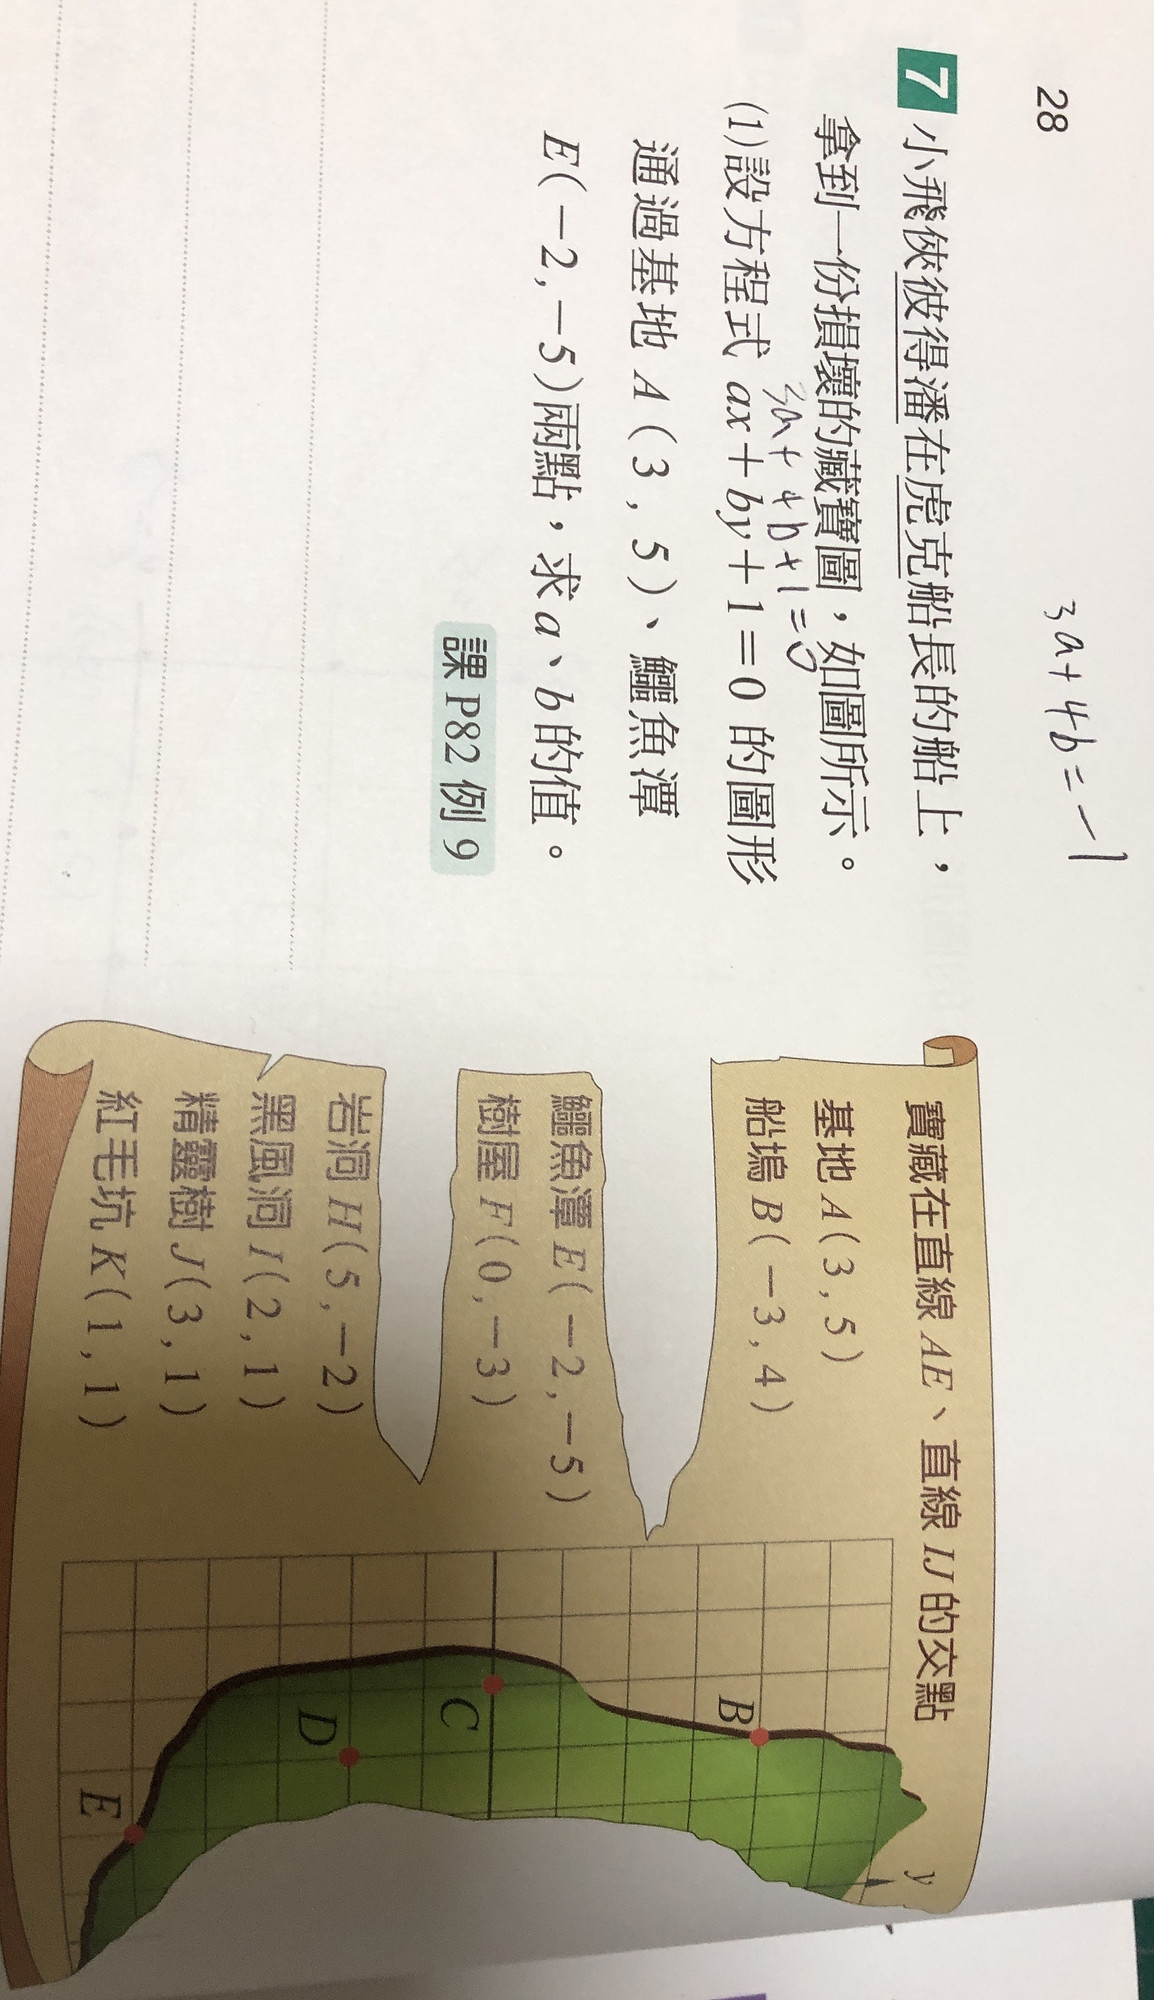 28
3a+4b=-1
7 小飛俠彼得潘在虎克船長的船上，
拿到一份損壞的藏寶圖，如圖所示。
3a+4b+1=0
(1)設方程式 ax+by+1=0 的圖形
通過基地 A(3,5)、鱷魚潭
E(-2,-5)兩點，求a、b的值。
課 P82 例 9
寶藏在直線 AE、直線 IJ 的交點
基地 A(3,5)
船塢 B(-3,4)
鱷魚潭 E(-2,-5)
樹屋 F(0,-3)
岩洞 H(5,-2)
黑風洞 I(2,1)
精靈樹 J(3,1)
紅毛坑 K(1,1)
y
B
C
D
E